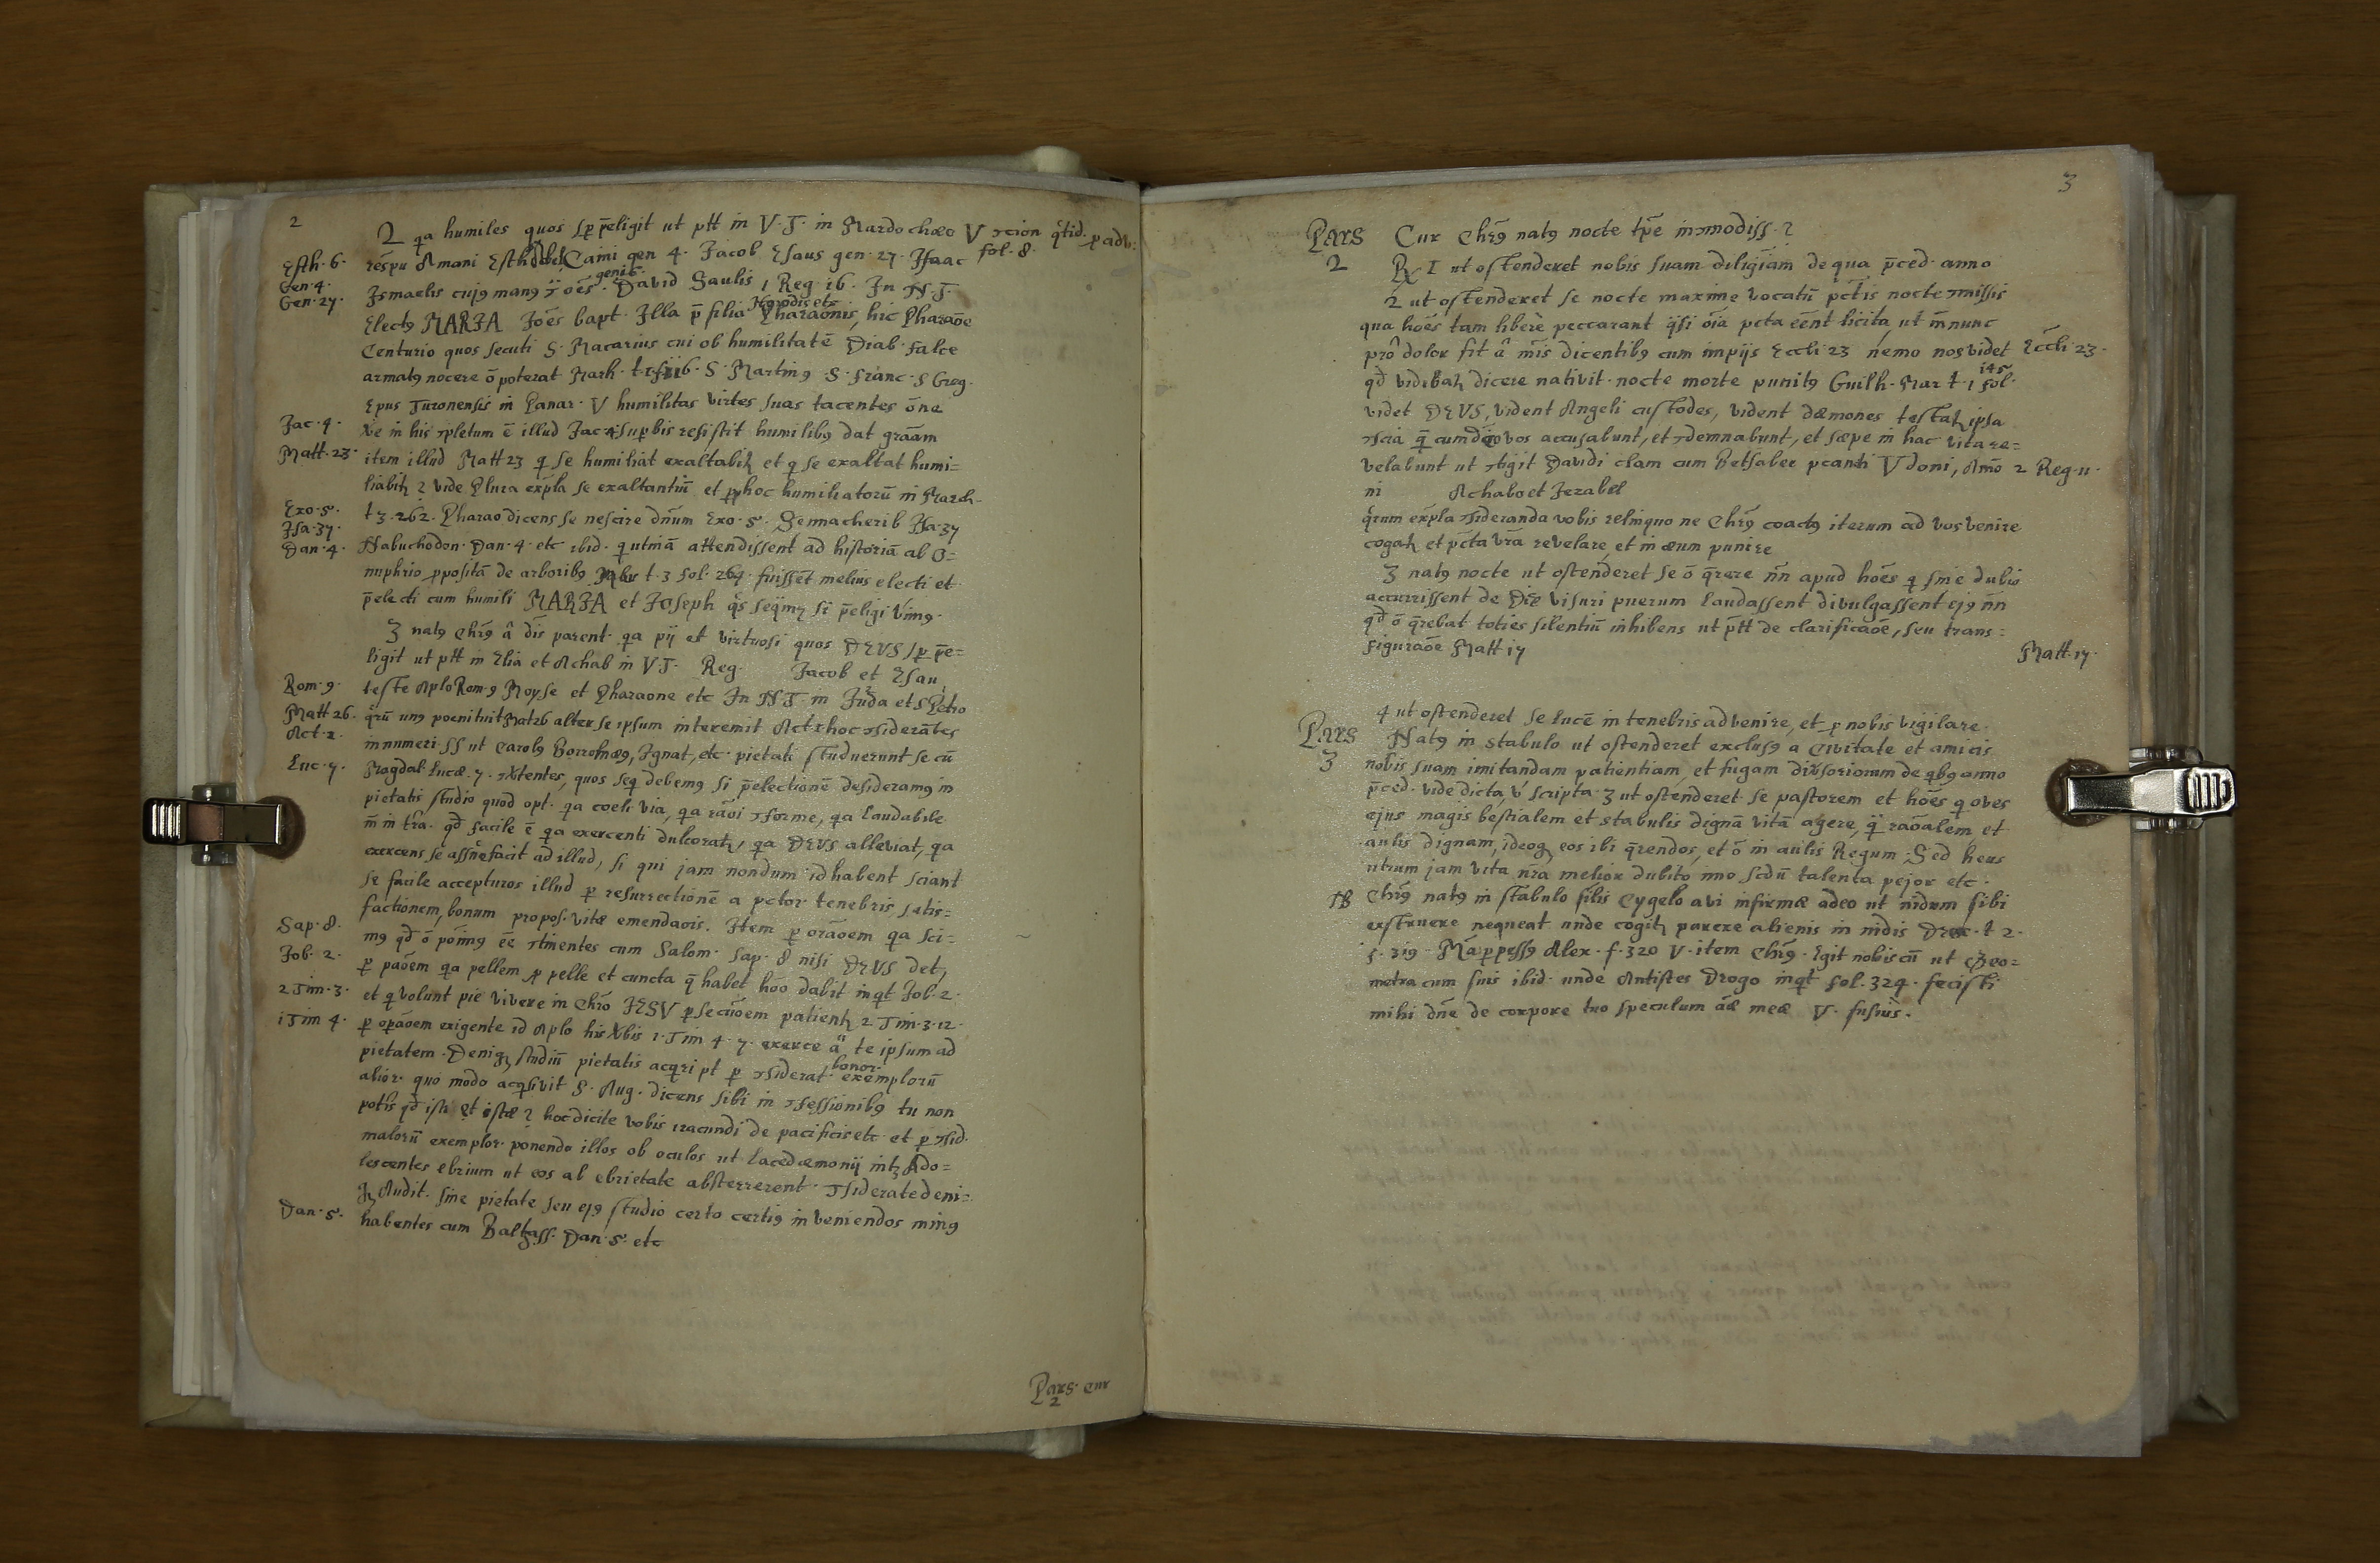 2
2 qa humiles quos sp p̄eligit ut ptt in V. T. in Mardochæo V ꝯcion q̓tid. p adv.
fol. 8.
Esth. 6. respu Amani Esth Abel Cami gen 4. Jacob Esaus gen. 27. Isaac
Gen. 4.
Gen. 27. Ismaelis cujꝯ manꝯ ōēs gen 16. David Saulis 1 Reg 16. In N. T.
Electꝯ MARIA Joēs bapt. Illa p̄ filia Herodis etc Pharaonis, hic Pharaōe
Centurio quos secuti S. Macarius cui ob humilitatē Diab. falce
armatꝯ nocere ō poterat March. S. Martinꝯ S. Franc. S Greg.
Epus Turonensis in Panar. V humilitas virtes suas tacentes
Jac. 4. in his ꝯpletum ē illud Jac 4 supbis resistit humilibꝯ dat grāam
Matt. 23. item illud Matt 23 q se humiliat exaltabit et q se exaltat humi=
liabit 2 vide Plura expla se exaltantiū et pp hoc humiliatorū in March.
Exo. 5. t 3. 262. Pharao dicens se nescire dn̄um Exo. 5. Sennacherib Isa. 37
Isa. 37.
Dan. 4. Nabuchodon. Dan. 4. etc ibid. q utinā attendissent ad historiā ab O=
nuphrio ppositā de arboribꝯ t. 3 fol. 264. fuissēt melius electi et
p̄electi cum humili MARIA et Joseph q̓s seq̄mꝯ si p̄eligi
3 natꝯ Chrꝯ ā dīs parent. qa pij et virtuosi quos DEUS sp p̄e=
ligit ut ptt in Elia et Achab in V T. Reg. Jacob et Esau
Rom. 9. teste Aplo Rom. 9 Moyse et Pharaone etc In N. T. in Juda et S Petro
Matt 26. q̓rū unꝯ poenituit Mat 26 alter se ipsum interemit Act 1 hoc ꝯsiderātes
Act. 2. innumeri SS ut Carolꝯ Borromæꝯ, Ignat, etc. pietati studuerunt se cū
Luc. 7. Magdal. Lucæ. 7. tentes, quos seq debemꝯ si p̄electionē desideramꝯ in
pietatis studio quod opt. qa coeli via, qa rāoi ꝯforme, qa laudabile
in trā. qd facile ē qa exercenti dulcorat, qa DEUS alleviat, qa
exercens se assuefacit ad illud, si qui jam nondum id habent sciant
se facile accepturos illud p resurrectionē a pctor. tenebris satis=
factionem, bonum propos. vitæ emendaois. Item p orāoem qa sci=
Sap. 8. mꝯ qd ō pōimꝯ ēe ꝯtinentes cum Salom. Sap. 8 nisi DEUS det,
Job. 2. p paōem qa pellem p pelle et cuncta q̄ habet hōo dabit inqt Job. 2.
2 Tim. 3. et q volunt pie vivere in Chrō IESU psecūoem patient 2 Tim. 3. 12.
1 Tim 4. p opāoem exigente id Aplo his Vbis 1. Tim 4. 7. exerce ā te ipsum ad
pietatem. Deniqꝫ studiū pietatis acqri pt p ꝯsiderat. bonor. exemplorū
alior. quo modo acqsivit S. Aug. dicens sibi in ꝯfessionibꝯ tu non
potis qd isti et istæ? hoc dicite vobis iracundi de pacificis etc. et p ꝯsid.
malorū exemplor. ponendo illos ob oculos ut Lacedæmonij Ado=
lescentes ebrium ut eos ab ebrietate absterrerent. ꝯsiderate deni=
qꝫ Audit. sine pietate seu ejꝯ studio certo certiꝯ inveniendos minꝯ
Dan. 5. habentes cum Baltzass. Dan. 5. etc
Pars. Cur
2
3
Pars 2 Cur Chrꝯ natꝯ nocte tp̄e inꝯmodiss.?
R 1 ut ostenderet nobis suam diligiam de qua p̄ced. anno
2 ut ostenderet se nocte maxime vocatū pctis nocte ꝯmissis
qua hōes tam liberè peccarant q̄si ōia pcta ēent licita, ut nunc
prô dolor fit â dicentibꝯ cum impijs Eccli 23 nemo nos videt Eccli. 23.
qd dicere nativit. nocte morte punitꝯ Guilh. Mar t. 1 fol. 145
videt DEUS, vident Angeli custodes, vident dæmones testat ipsa
ꝯscia q̄ cum vos accusabunt, et ꝯdemnabunt, et sæpe in hac vita re=
velabunt ut ꝯtigit Davidi clam cum Betsabee pcanti V doni, 2 Reg. 11.
ni Achabo et Jezabel
q̓rum expla ꝯsideranda vobis relinquo ne Chrꝯ coactꝯ iterum ad vos venire
cogat et pcta vrā revelare, et in æum punire
3 natꝯ nocte ut ostenderet se ō q̄rere nn̄ apud hōes q sine dubio
accurrissent de Die visuri puerum laudassent divulgassent ejꝯ nn̄
qd ō q̄rebat toties silentiū inhibens ut ptt de clarificaōe, seu trans=
figuraōe Matt 17 Matt. 17.
4 ut ostenderet se lucē in tenebris advenire, et p nobis vigilare.
Pars 3 Natꝯ in stabulo ut ostenderet exclusꝯ a Civitate et amicis
nobis suam imitandam patientiam, et fugam diversoriorum de qbꝯ anno
p̄ced. vide dicta, v scripta. 3 ut ostenderet se pastorem et hōes q oves
ejus magis bestialem et stabulis dignā vitā agere, q̄ raōalem et
aulis dignam, ideoqꝫ eos ibi q̄rendos, et ō in aulis Regum. Sed heus
utrum jam vita nrā melior dubito imo scdū talenta pejor etc.
NB Chrꝯ natꝯ in stabulo silis Cygelo avi infirmæ adeo ut nidum sibi
exstruere nequeat unde cogit parere alienis in nidis Drex. t 2.
f. 319. Alex. f. 320 V. item Chrꝯ. Egit nobiscū ut Geo=
metra cum suis ibid. unde Antistes Drogo inqt fol. 324. fecisti
mihi dn̄e de corpore tuo speculum āæ meæ V. fusiùs.